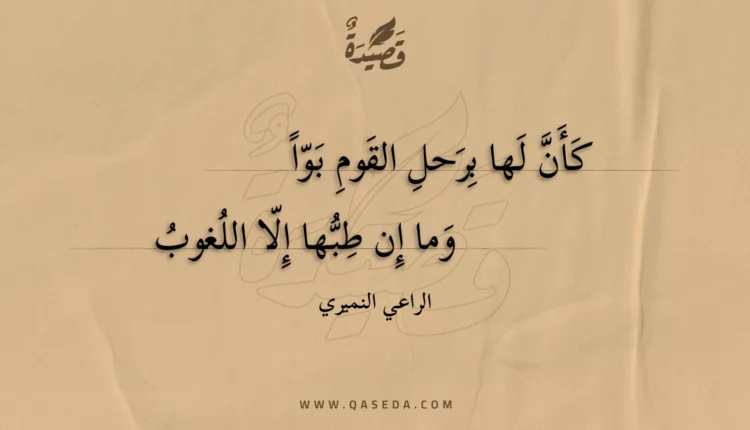 قَصِيْدَةٌ
كَأَنَّ لَها بِرَحلِ القَومِ بَوّاً
وَما إِن طِبُّها إِلّا اللُغوبُ
الراعي النميري
WWW.QASEDA.COM